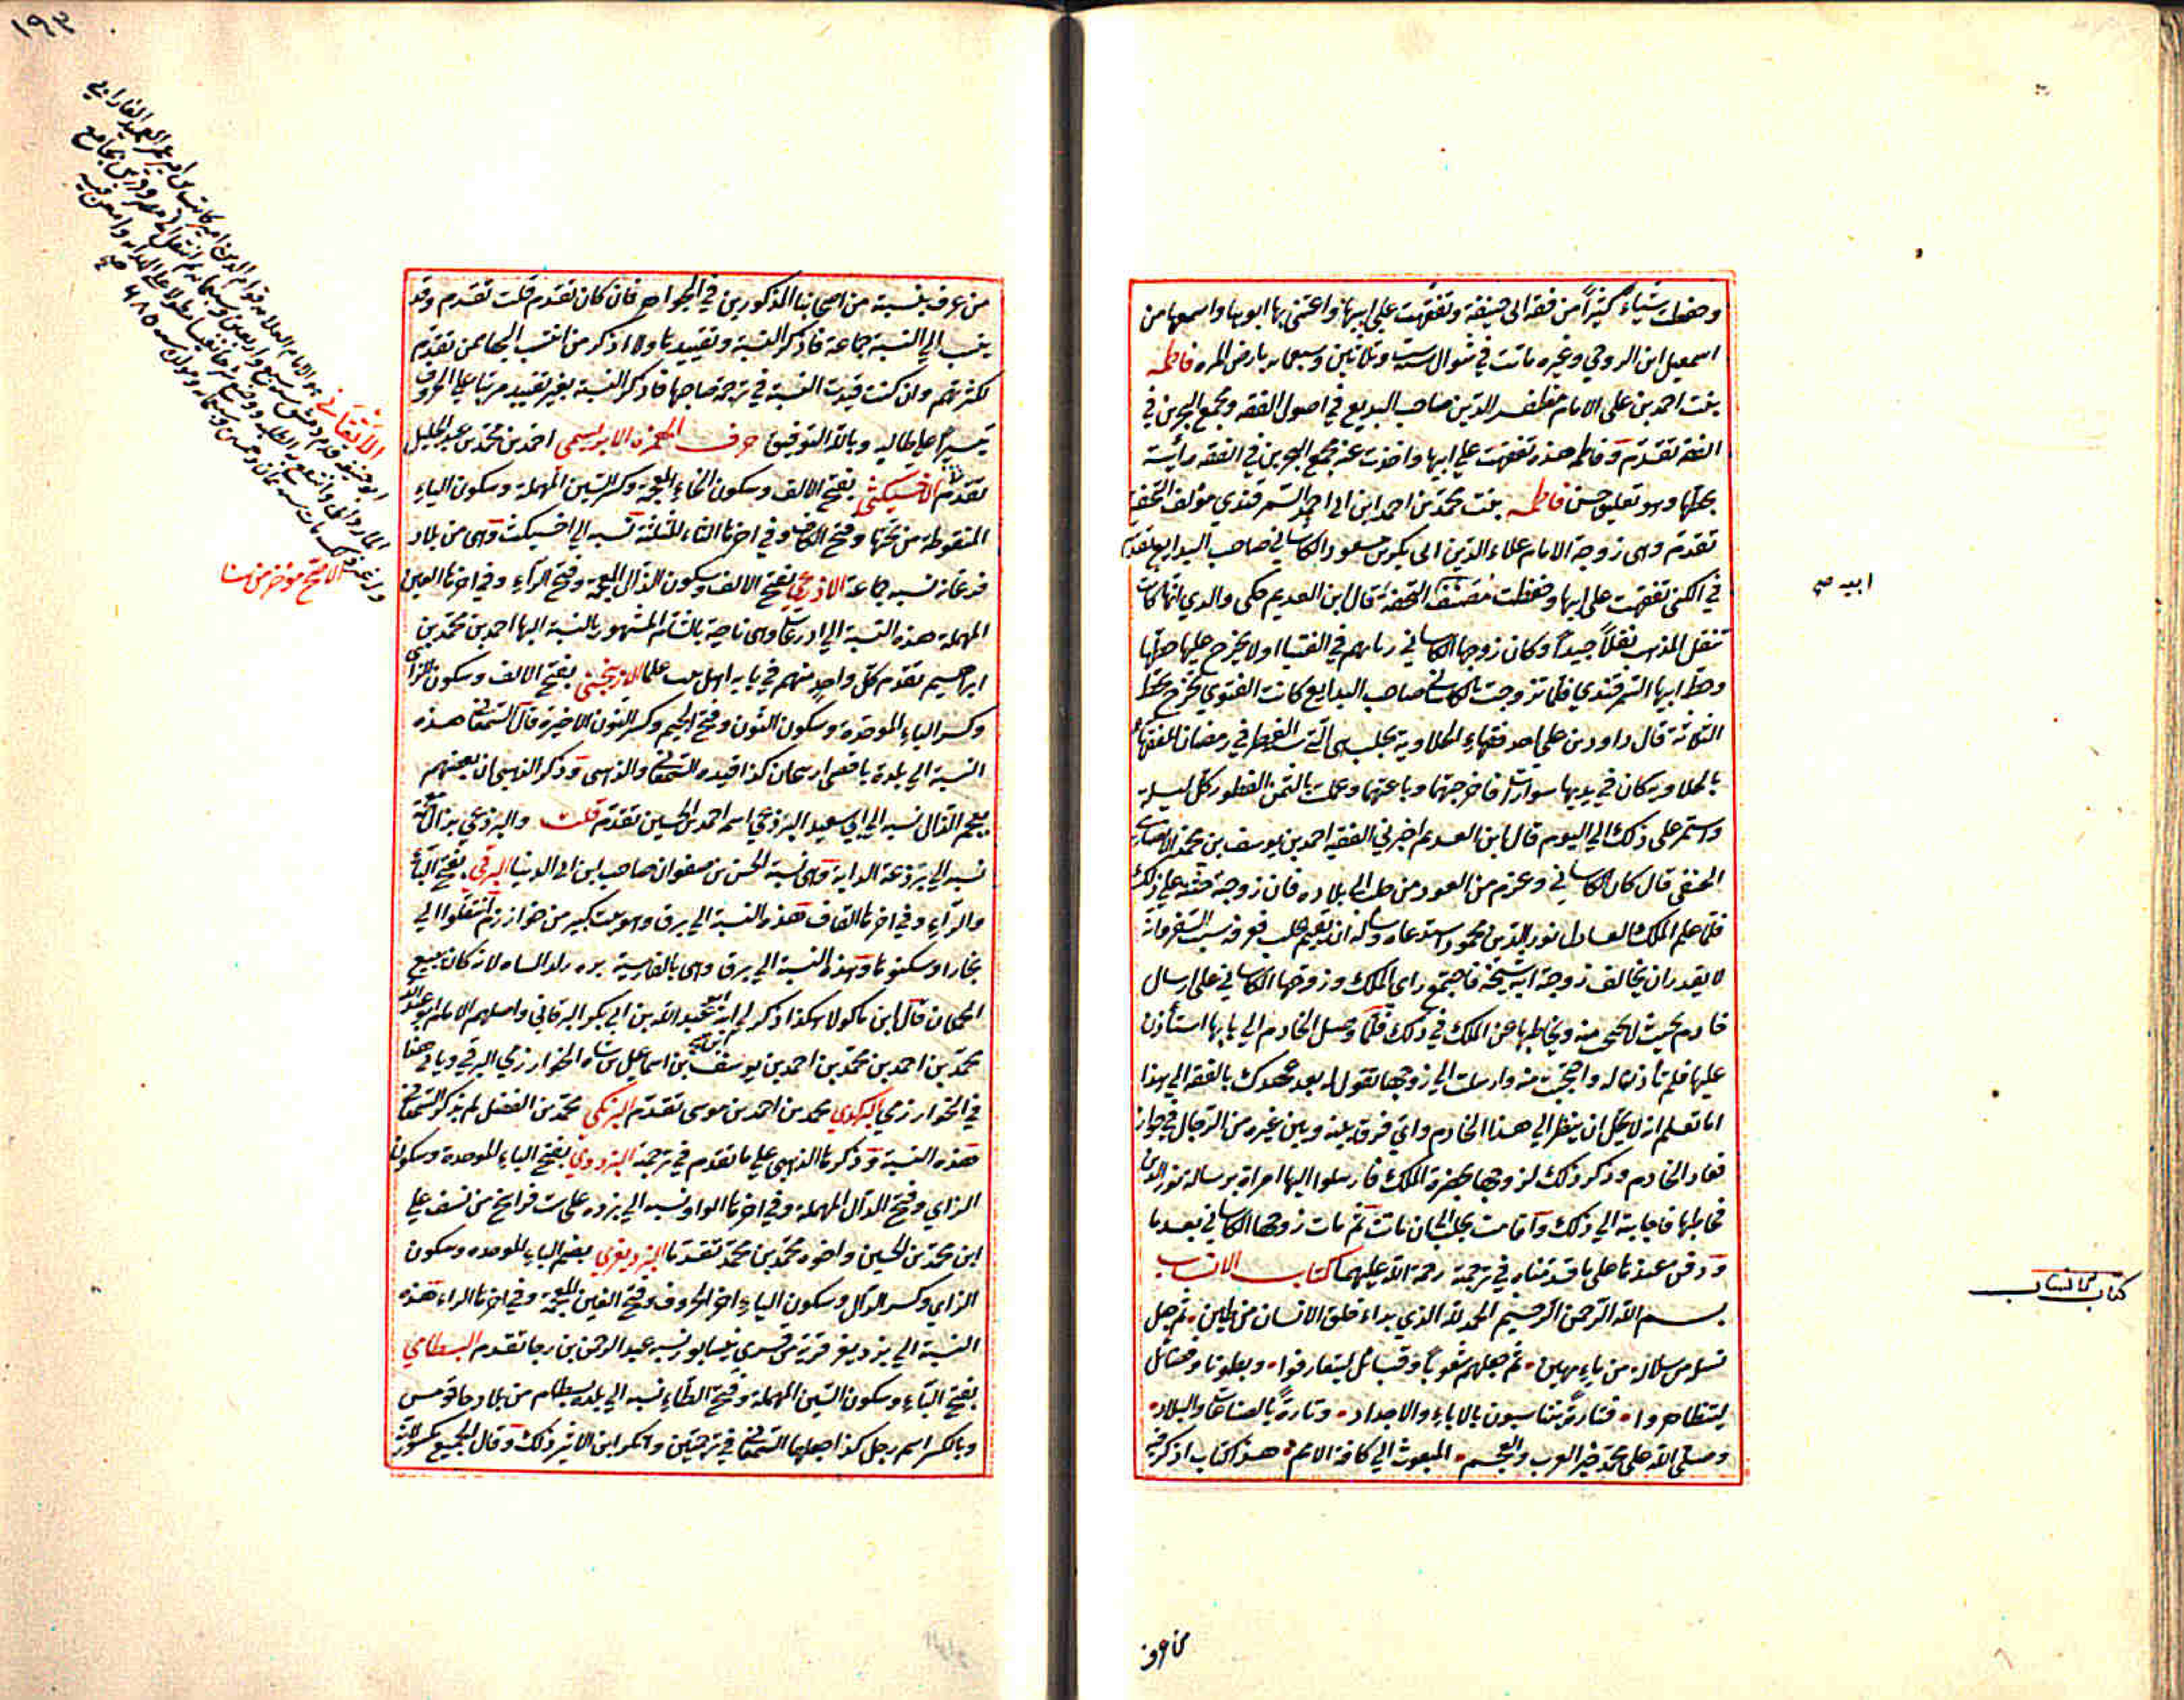 وحفظت شيئاء كثيرا من فقه ابى حنيفة وتفقهت على ابيها واعتنى بها ابوها واسمعها من
اسمعيل ابن الروحي وغيره ماتت في شوال ست وثلاثين وسبعمايه بارض المره فاطمه
بنت احمد بن على الامام مظفر الدين صاحب البديع في اصول الفقه ومجمع البحرين في
الفقه تقدم وفاطمه هذه تفقهت على ابيها واخذت عنه مجمع البحرين في الفقه رأيته
بخطها وهو تعليق حسن فاطمه بنت محمد بن احمد ابن ابى احمد السمرقندي مؤلف التحفة
تقدم وهى زوجة الامام علاء الدين ابى بكر بن مسعود الكاسانى صاحب البدايع تقدم
في الكنى تفقهت على ابيها وحفظت مصنفه التحفة قال ابن العديم حكى والدي انها كانت
تنقل المذهب نقلا جيدا وكان زوجها الكاسانى ربما يهم في الفتيا
وخط ابيها السمرقندي فلما تزوجت بالكاسانى صاحب البدايع كانت الفتوي تخرج بخط
الثلاثة قال داود بن على احد فقهاء الحلاوية بحلب هى التى سنت الفطر في رمضان للفقهاء
بالحلاويه كان في يديها سواران فاخرجتهما وباعتهما وعملت بالثمن الفطور كل ليلة
واستمر على ذلك الى اليوم قال ابن العديم اخبرني الفقيه احمد بن يوسف بن محمد الانصارى
الحنفى قال كان الكاسانى وعزم من العود من حلب الى بلاده فان زوجته حثته على ذلك
فلما علم الملك العادل نور الدين محمود استدعاه وسأله ان يقيم بحلب فعرفه سبب السفر وانه
لا يقدر ان يخالف زوجته ابنة شيخه فاجتمع راي الملك وزوجها الكاسانى على ارسال
خادم بحيث لا تحتجب منه ويخاطبها عن الملك في ذلك فلما وصل الخادم الى بابها استأذن
عليها فلم تأذن له واحتجبت منه وارسلت الى زوجها تقول له بعد عهدك بالفقه الى هذا
اما تعلم انه لا يحل ان ينظر الى هذا الخادم واي فرق بينه وبين غيره من الرجال في جواز
فعاد الخادم وذكر ذلك لزوجها بحضرة الملك فارسلوا اليها امراة برسالة نور الدين
فخاطبتها فاجابته الى ذلك واقامت بحلب الى ان ماتت ثم مات زوجها الكاسانى بعدها
ودفن عندها على ما قدمناه في ترجمة رحمة الله عليهما كتاب الانساب
بسم الله الرحمن الرحيم الحمد لله الذي بداء خلق الانسان من طين ثم جعل
نسله من سلاله من ماء مهين ثم جعلهم شعوبا وقبائل ليتعارفوا وبطونا وفصائل
ليتظاهروا فتارة يتناسبون بالاباء والاجداد وتارة بالصناعات والبلاد
وصلى الله على محمد خير العرب والعجم المبعوث الى كافة الامم هذا كتاب اذكر فيه
ابيه صح
كتاب الانساب
من عرف
١٩٤
من عرف بنسبة من اصحابنا المذكورين في الجواهر فان كان تقدم قلت تقدم وقد
ينسب الى النسبة جماعة فاذكر النسبة وتقييدها ولا اذكر من انتسب اليها ممن تقدم
لكثرتهم وان كنت قيدت النسبة في ترجمة صاحبها فاذكر النسبة بغير تقييد مرتبا على الحروف
تيسيرا على طالبه وبالله التوفيق حرف الهمزة الابريسمى احمد بن محمد بن عبد الجليل
تقدم الاخسيكثى بفتح الالف وسكون الخاء المعجمة وكسر السين المهملة وسكون الياء
المنقوطة من تحتها وفتح الكاف وفي اخرها الثاء المثلثة نسبه الى اخسيكث وهى من بلاد
فرغانه نسبه جماعة الاذرعي بفتح الالف وسكون الذال المعجمة وفتح الراء وفي اخرها العين
المهملة هذه النسبة الى اذرعات وهى ناحية بالشام المشهور بالنسبة اليها احمد بن محمد بن
ابراهيم تقدم كل واحد منهم في بابه اهل بيت علما الازبنجنى بفتح الالف وسكون الزاى
وكسر الباء الموحدة وسكون النون وفتح الجيم وكسر النون الاخيرة قال السمعانى هذه
النسبة الى بلدة كذا قيده السمعانى والذهبى وذكر الذهبى ان بعضهم
بعجم الذال نسبه الى ابى سعيد البرذعي اسمه احمد بن الحسين تقدم قلت والبرذعي
نسبه الى برذعة الدابة وهى نسبة الحسن بن صفوان صاحب ابن ابى الدنيا البرقى بفتح الباء
والراء وفي اخرها القاف هذه النسبة الى برق وهو بيت كبير من خوارزم انتقلوا الى
بخارا وسكنوها وهذه النسبة الى برق وهى بالفارسية بره ولد الشاه لانه كان يبيع
الحملان قال ابن ماكولا هكذا ذكر لى ابنه عبد الله بن ابى بكر البرقانى واصلهم الامام ابو عبد الله
محمد بن احمد بن محمد بن احمد بن يوسف بن اسماعيل بن شاه الخوارزمي البرقى وياتى هنا
في الخوارزمي البركدي محمد بن احمد بن موسى تقدم البزنكى محمد بن الفضل لم يذكر السمعانى
هذه النسبة وذكرها الذهبى على ما تقدم في ترجمة البزدوي بفتح الباء الموحدة وسكون
الزاي وفتح الدال المهملة وفي اخرها الواو نسبه الى بزده على ست فراسخ من نسف على
ابن محمد بن الحسين واخوه محمد بن محمد تقدما البزديغري بضم الباء الموحده وسكون
الزاي وكسر الدال وسكون الياء اخر الحروف وفتح الغين المعجمة وفي اخرها الراء هذه
النسبة الى بزديغر قرية من قرى نيسابور نسبه عبد الرحمن بن رجا تقدم البسطامي
بفتح الباء وسكون السين المهملة وفتح الطاء نسبه الى بلدة بسطام من بلاد قومس
وبالكسر اسم رجل كذا جعلها السمعانى في ترجمتين وانكر ابن الاثير ذلك وقال الجميع مكسور
الاتقانى هو الامام العلامه قوام الدين امير كاتب بن امير عمر العميد الفارابى
ابو حنيفه قدم دمشق سنة سبع واربعين وسبعمايه ثم انتقل الى مصر ودرس بجامع
الماردانى وانتفع به الطلبه ووضع شرحا نفيسا مطولا على الهدايه وامعن فيه
مات سنه ثمان وخمسين وسبعمايه ومولده سنه ٦٨٥ صح
الامح مؤخر من هنا